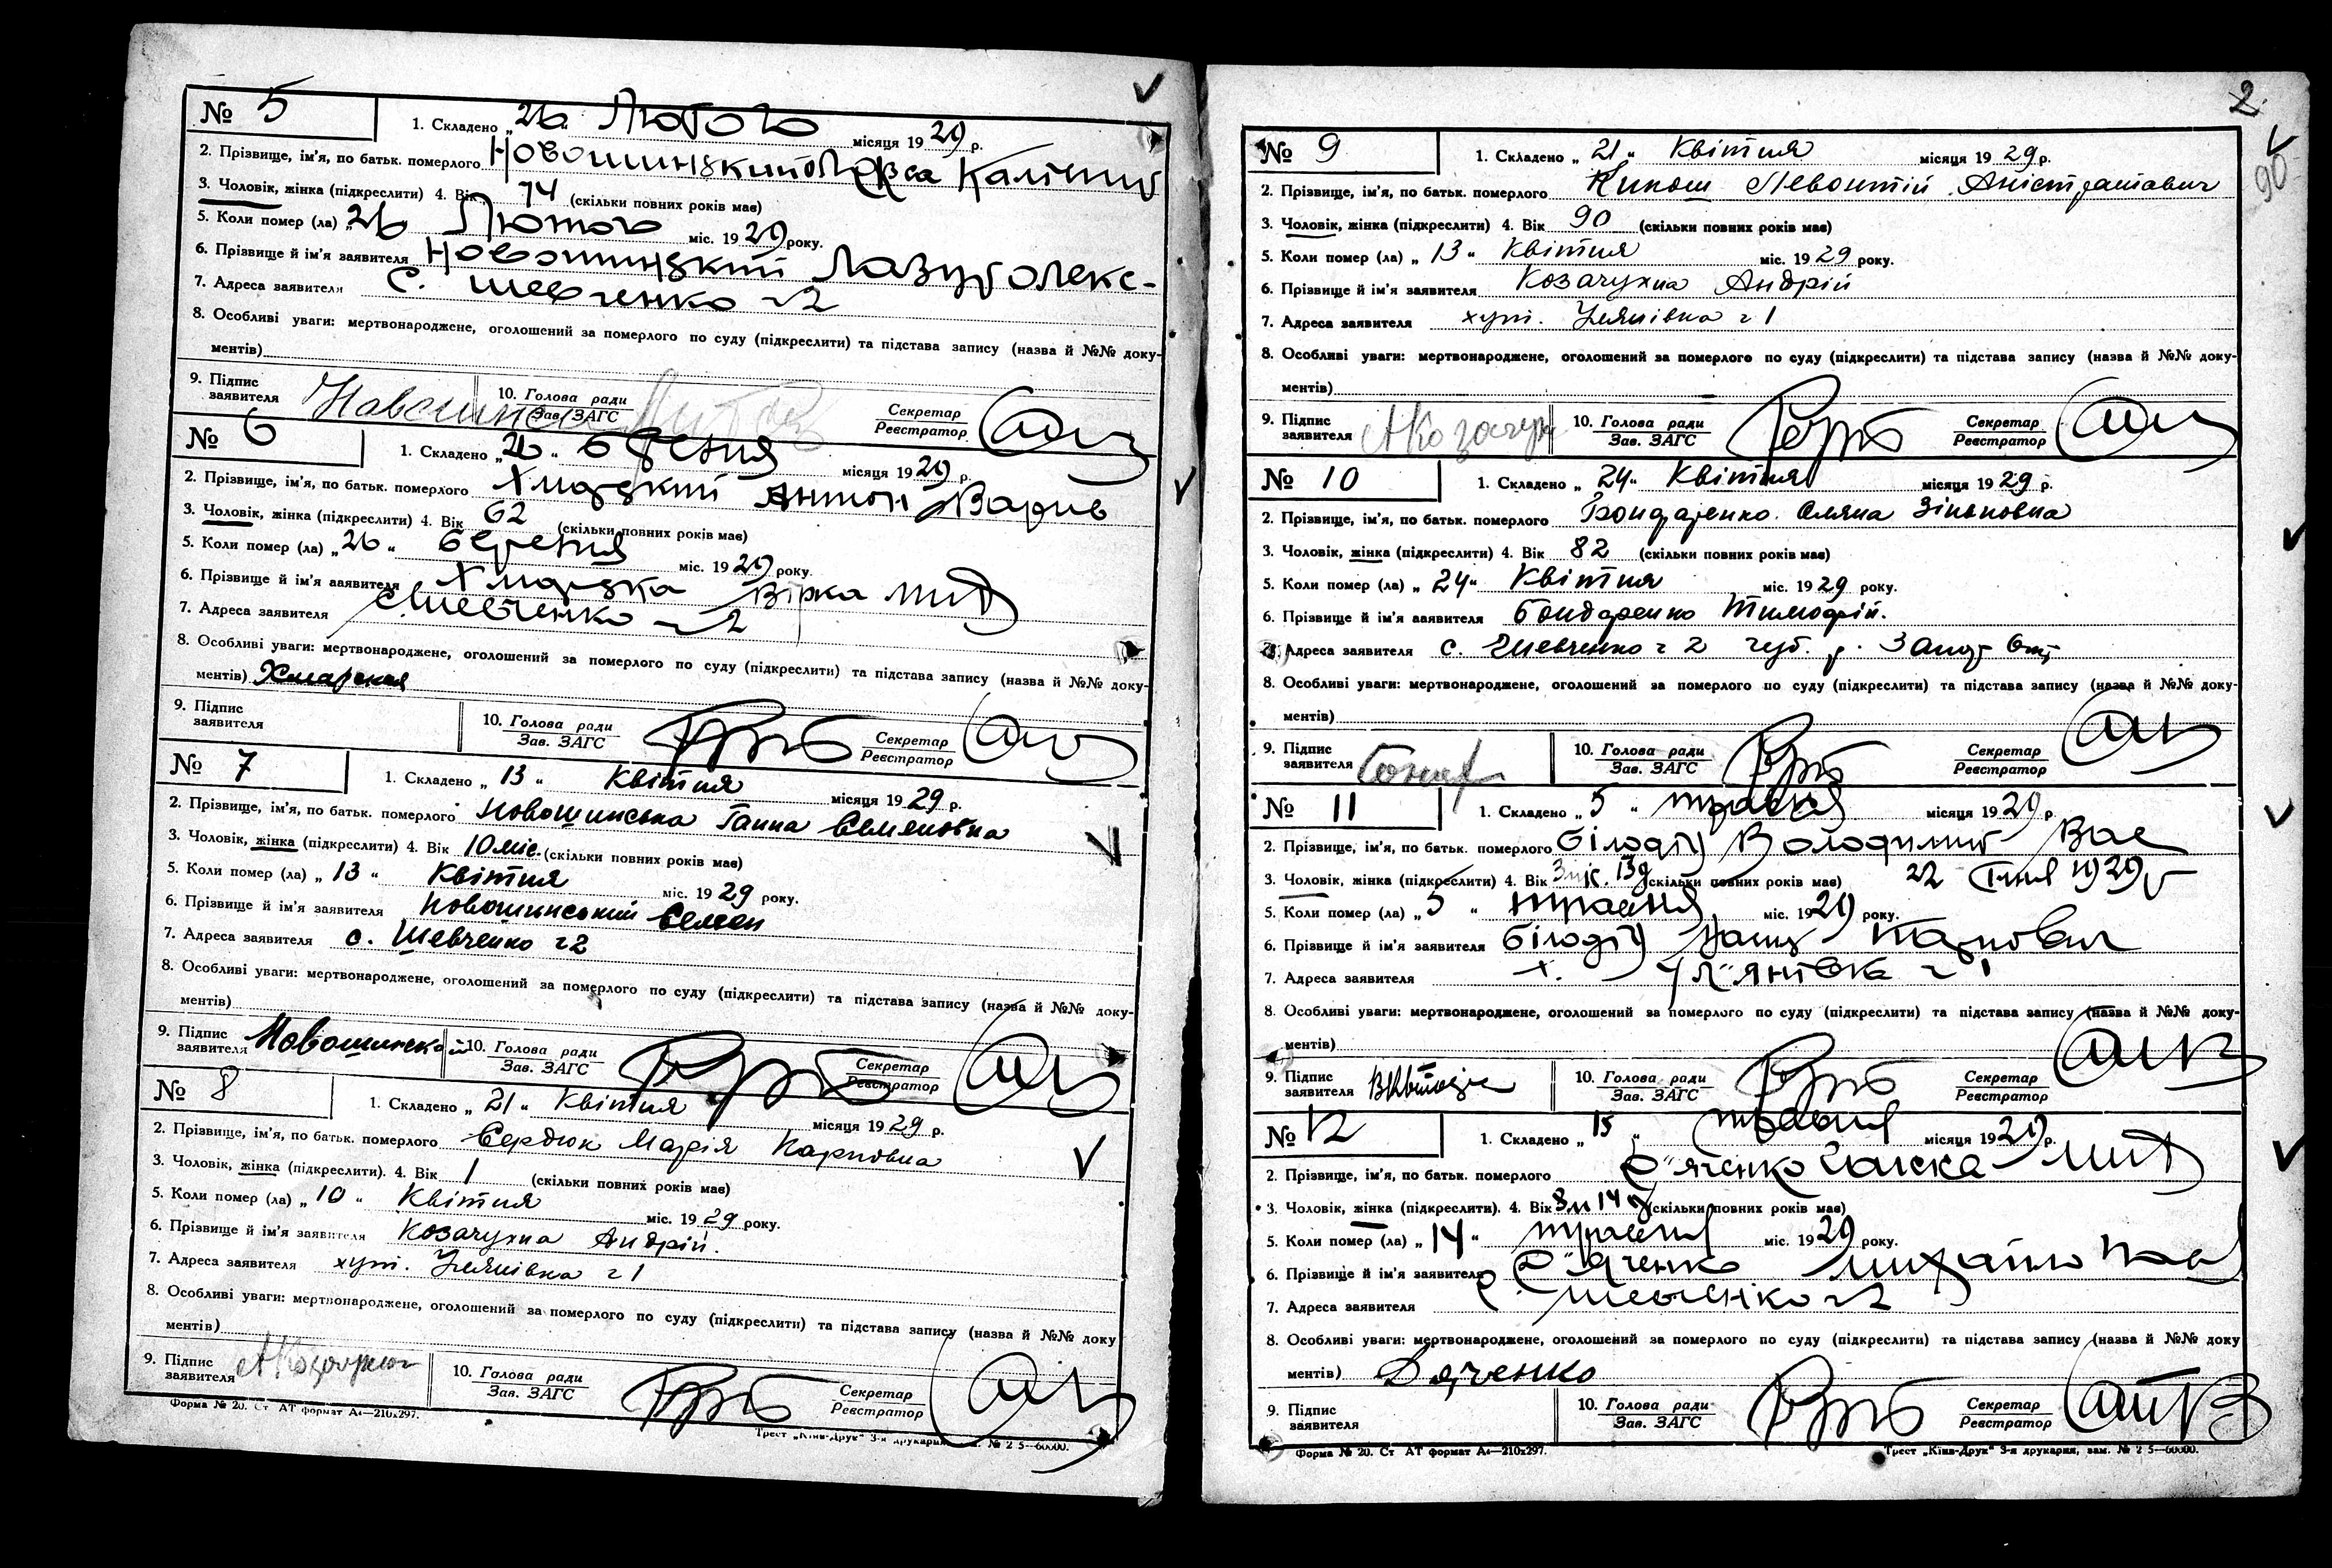 № 5
1. Складено „26“ Лютого місяця 1929 р.
2. Прізвище, ім'я, по батьк. померлого Новошинский
3. Чоловік, жінка (підкреслити) 4. Вік 74 (скільки повних років має)
5. Коли помер (ла) „26 Лютого міс. 1929 року.
6. Прізвище й ім'я заявителя Новошинский Лазур Олекс-
7. Адреса заявителя с. Шевченко №2
8. Особливі уваги: мертвонароджене, оголошений за померлого по суду (підкреслити) та підстава запису (назва й №№ доку-
ментів)
9. Підпис заявителя 10. Голова ради Зав. ЗАГС Секретар Реєстратор
№ 6
1. Складено „26“ березня місяця 1929 р.
2. Прізвище, ім'я, по батьк. померлого Антон
3. Чоловік, жінка (підкреслити) 4. Вік 62 (скільки повних років має)
5. Коли помер (ла) „26“ березня міс. 1929 року.
6. Прізвище й ім'я заявителя Вірка
7. Адреса заявителя с. Шевченко №2
8. Особливі уваги: мертвонароджене, оголошений за померлого по суду (підкреслити) та підстава запису (назва й №№ доку-
ментів) Хмарская
9. Підпис заявителя 10. Голова ради Зав. ЗАГС Секретар Реєстратор
№ 7
1. Складено „13“ Квітня місяця 1929 р.
2. Прізвище, ім'я, по батьк. померлого Новошинська Ганна Семяновна
3. Чоловік, жінка (підкреслити) 4. Вік 10 міс. (скільки повних років має)
5. Коли помер (ла) „13“ Квітня міс. 1929 року.
6. Прізвище й ім'я заявителя Новошинський Семен
7. Адреса заявителя с. Шевченко №2
8. Особливі уваги: мертвонароджене, оголошений за померлого по суду (підкреслити) та підстава запису (назва й №№ доку-
ментів)
9. Підпис заявителя Новошинский 10. Голова ради Зав. ЗАГС Секретар Реєстратор
№ 8
1. Складено „21“ Квітня місяця 1929 р.
2. Прізвище, ім'я, по батьк. померлого Сердюк Марія Карповна
3. Чоловік, жінка (підкреслити). 4. Вік 1 (скільки повних років має)
5. Коли помер (ла) „10“ Квітня міс. 1929 року.
6. Прізвище й ім'я заявителя Козачухна Андрій.
7. Адреса заявителя хут. Улянівка №1
8. Особливі уваги: мертвонароджене, оголошений за померлого по суду (підкреслити) та підстава запису (назва й №№ доку
ментів)
9. Підпис заявителя 10. Голова ради Зав. ЗАГС Секретар Реєстратор
Форма № 20. Ст АТ формат А4—210x297.
Трест „Київ-Друк“ 3-я друкарня, зам. № 2 5—60000.
2
90
№ 9
1. Складено „21“ Квітня місяця 1929 р.
2. Прізвище, ім'я, по батьк. померлого Левонтій
3. Чоловік, жінка (підкреслити) 4. Вік 90 (скільки повних років має)
5. Коли помер (ла) „13“ Квітня міс. 1929 року.
6. Прізвище й ім'я заявителя Козачухна Андрій
7. Адреса заявителя хут. Улянівка №1
8. Особливі уваги: мертвонароджене, оголошений за померлого по суду (підкреслити) та підстава запису (назва й №№ доку-
ментів)
9. Підпис заявителя 10. Голова ради Зав. ЗАГС Секретар Реєстратор
№ 10
1. Складено „24“ Квітня місяця 1929 р.
2. Прізвище, ім'я, по батьк. померлого Бондаренко Оляна Зіновна
3. Чоловік, жінка (підкреслити) 4. Вік 82 (скільки повних років має)
5. Коли помер (ла) „24“ Квітня міс. 1929 року.
6. Прізвище й ім'я заявителя Бондаренко Тимофій.
7. Адреса заявителя с. Шевченко №2
8. Особливі уваги: мертвонароджене, оголошений за померлого по суду (підкреслити) та підстава запису (назва й №№ доку-
ментів)
9. Підпис заявителя 10. Голова ради Зав. ЗАГС Секретар Реєстратор
№ 11
1. Складено „5“ травня місяця 1929 р.
2. Прізвище, ім'я, по батьк. померлого Білодід Володимир Вас
3. Чоловік, жінка (підкреслити) 4. Вік 3 міс. 13 д (скільки повних років має) 22 1929 р
5. Коли помер (ла) „5“ травня міс. 1929 року.
6. Прізвище й ім'я заявителя Білодід Карпович
7. Адреса заявителя х. Ул"янівка №1
8. Особливі уваги: мертвонароджене, оголошений за померлого по суду (підкреслити) та підстава запису (назва й №№ доку-
ментів)
9. Підпис заявителя 10. Голова ради Зав. ЗАГС Секретар Реєстратор
№ 12
1. Складено „15“ травня місяця 1929 р.
2. Прізвище, ім'я, по батьк. померлого Д"яченко
3. Чоловік, жінка (підкреслити). 4. Вік 3 м 14 д (скільки повних років має)
5. Коли помер (ла) „14“ травня міс. 1929 року.
6. Прізвище й ім'я заявителя Д"яченко Михайло
7. Адреса заявителя с. Шевченко №2
8. Особливі уваги: мертвонароджене, оголошений за померлого по суду (підкреслити) та підстава запису (назва й №№ доку
ментів) Дяченко
9. Підпис заявителя 10. Голова ради Зав. ЗАГС Секретар Реєстратор
Форма № 20. Ст АТ формат А4—210x297.
Трест „Київ-Друк“ 3-я друкарня, зам. № 2 5—60000.